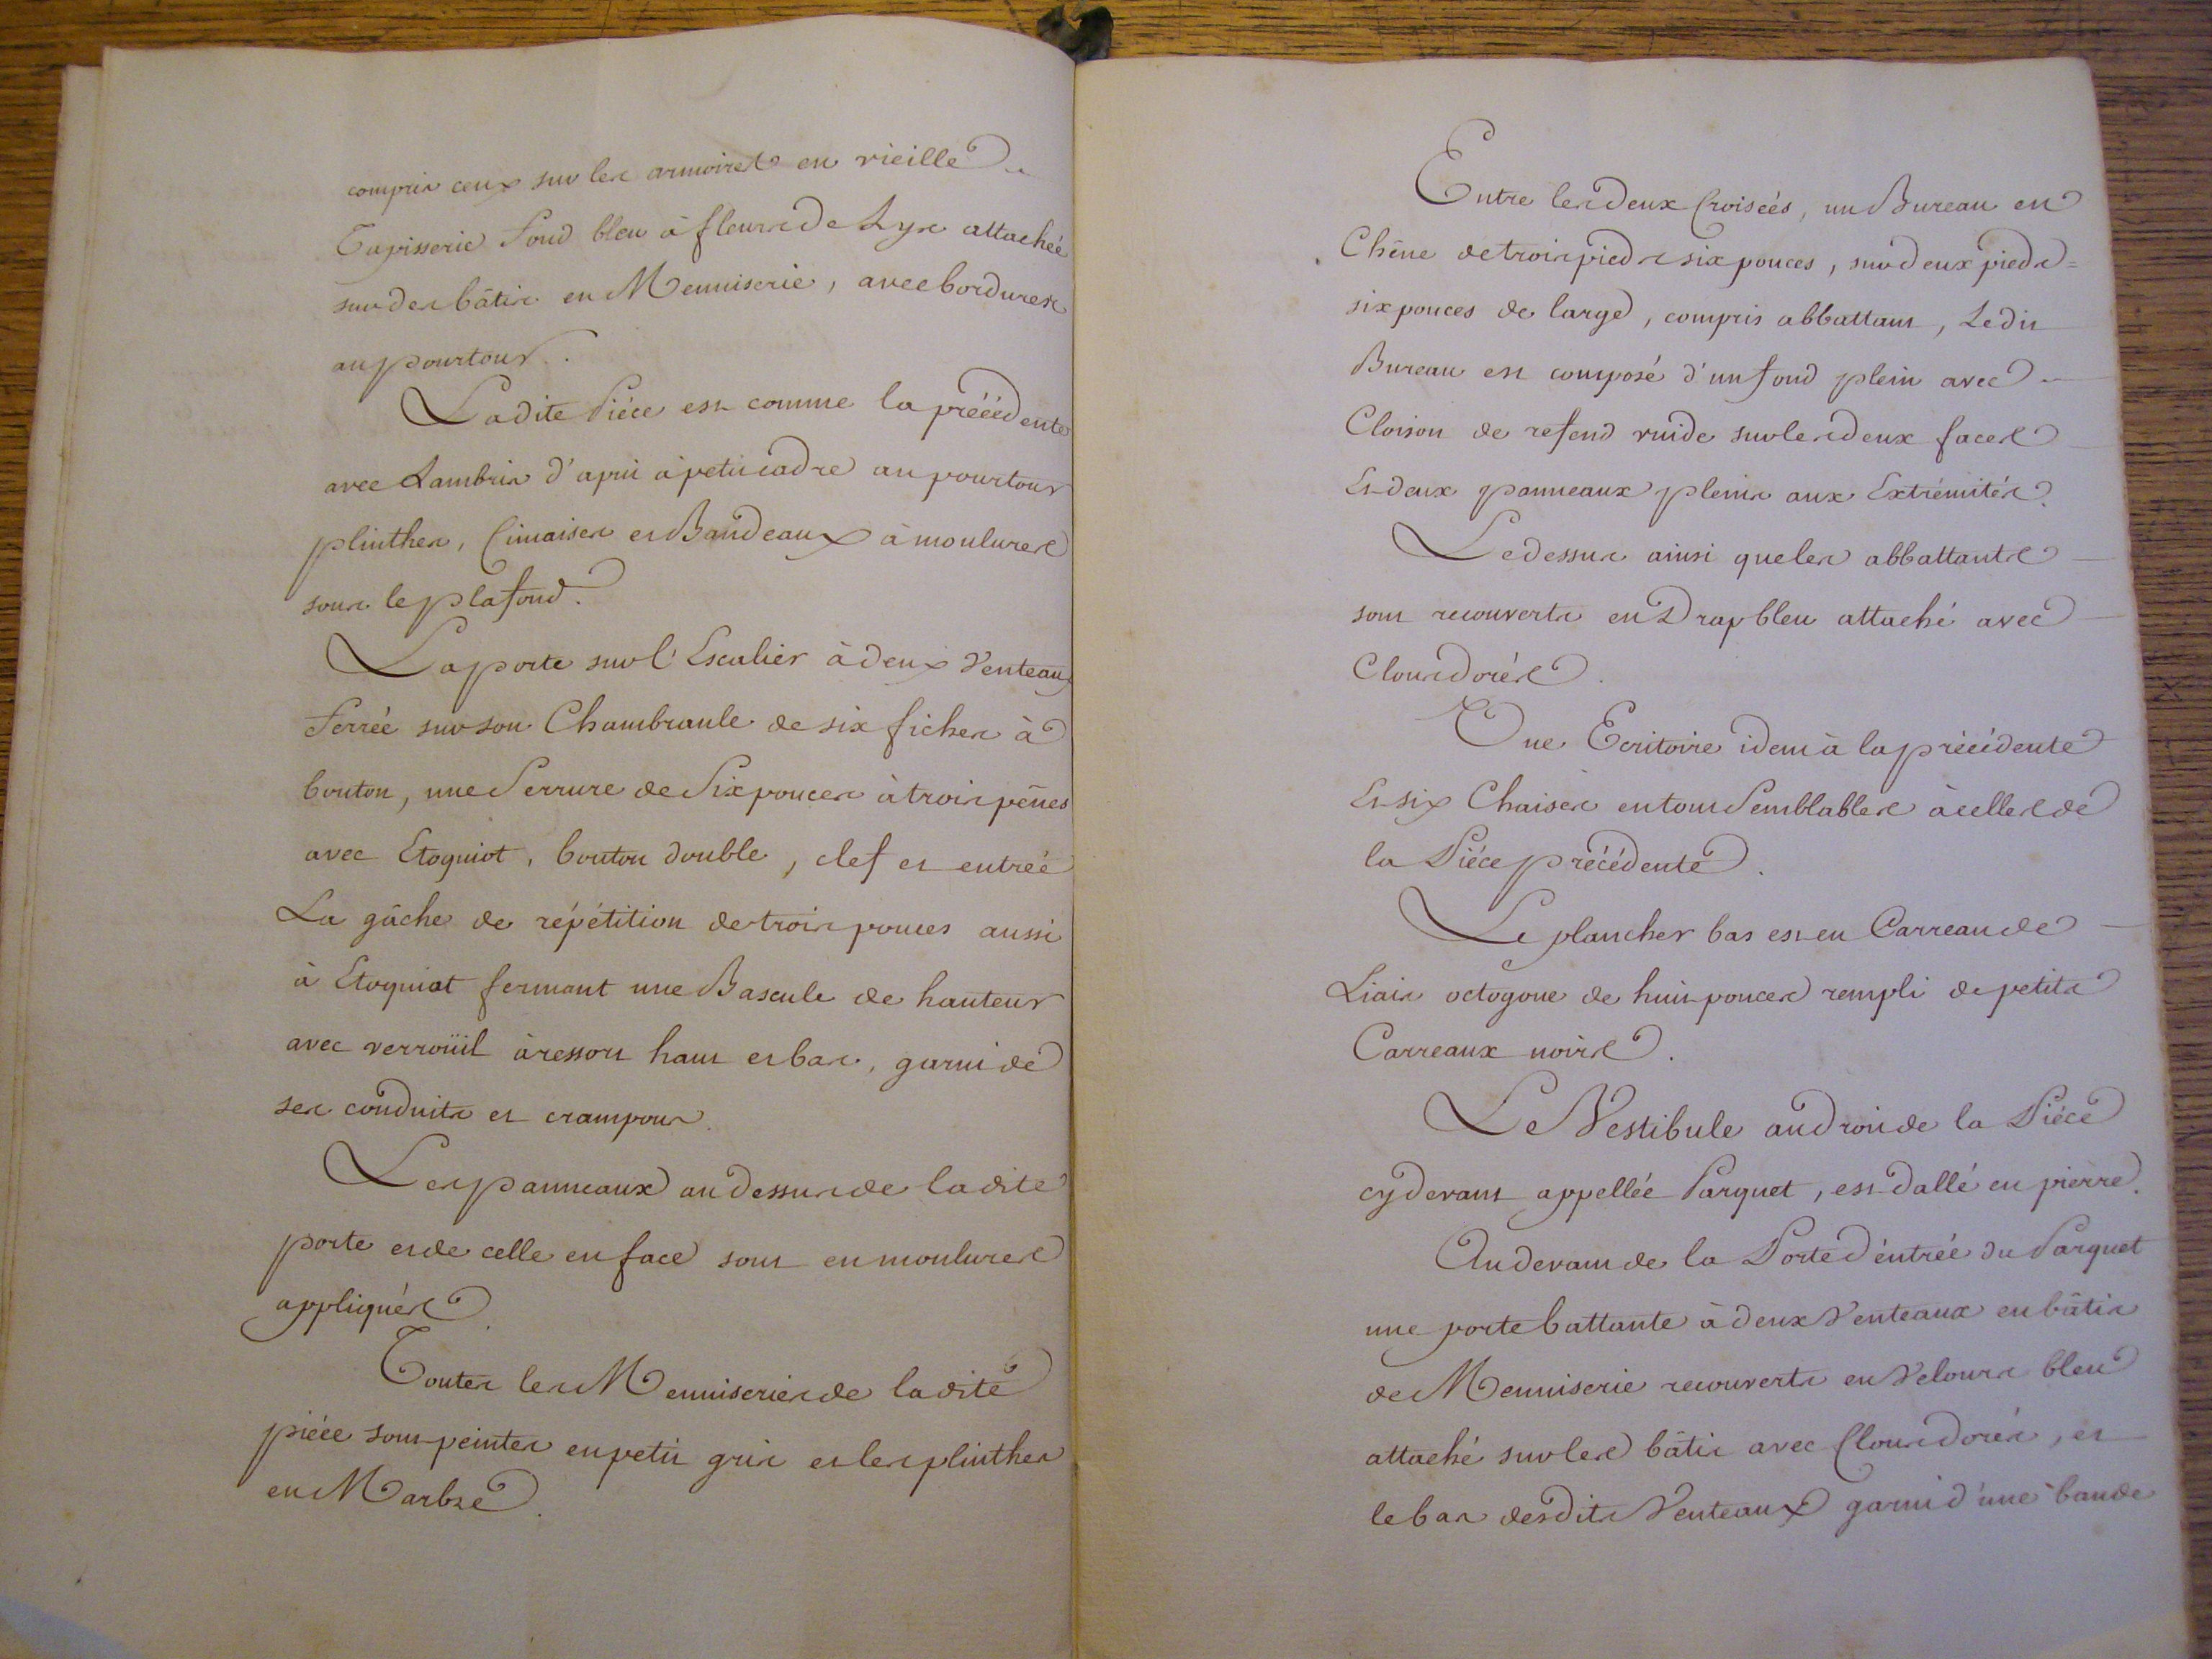 compris ceux sur les armoires en vieille
Tapisserie fond bleu à fleurs de Lys attachée
sur des bâtis en Menuiserie, avec bordures
au pourtour.
Ladite Piéce est comme la précédente
avec Lambris d'apui à petit cadre au pourtour
plinthes, Cimaises et Bandeaux à moulures
sous le plafond.
La porte sur l'Escalier à deux Venteaux
ferrée sur son Chambranle de six fiches à
bouton, une Serrure de Six pouces à trois pênes
avec Etoquiot, bouton double, clef et entrée
La gâche de répétition de trois pouces aussi
à Etoquiot fermant une Bascule de hauteur
avec verroüil à ressort haut et bas, garni de
ses conduits et crampons.
Les panneaux au dessus de ladite
porte et de celle en face sont en moulures
appliqués.
Toutes les Menuiseries de ladite
piéce sont peintes en petit gris et les plinthes
en Marbre.
Entre les deux Croisées, un Bureau en
Chêne de trois pieds six pouces, sur deux pieds=
six pouces de large, compris abbattant, Ledit
Bureau est composé d'un fond plein avec
Cloison de refend vuide sur les deux faces
Et deux panneaux pleins aux Extrémités.
Le dessus ainsi que les abbattants
sont recouverts en Drap bleu attaché avec
Clous dorés.
Une Ecritoire idem à la précédente
Et six Chaises en tout Semblables à celles de
la Piéce précédente.
Le plancher bas est en Carreau de
Liais octogone de huit pouces rempli de petits
Carreaux noirs.
Le Vestibule au droit de la Piéce
cy devant appellée Parquet, est dallé en pierre.
Au devant de la Porte d'éntrée du Parquet
une porte battante à deux Venteaux en bâtis
de Menuiserie recouverts en Velours bleu
attaché sur les bâtis avec Clous dorés, et
le bas desdits Venteaux garni d'une bande